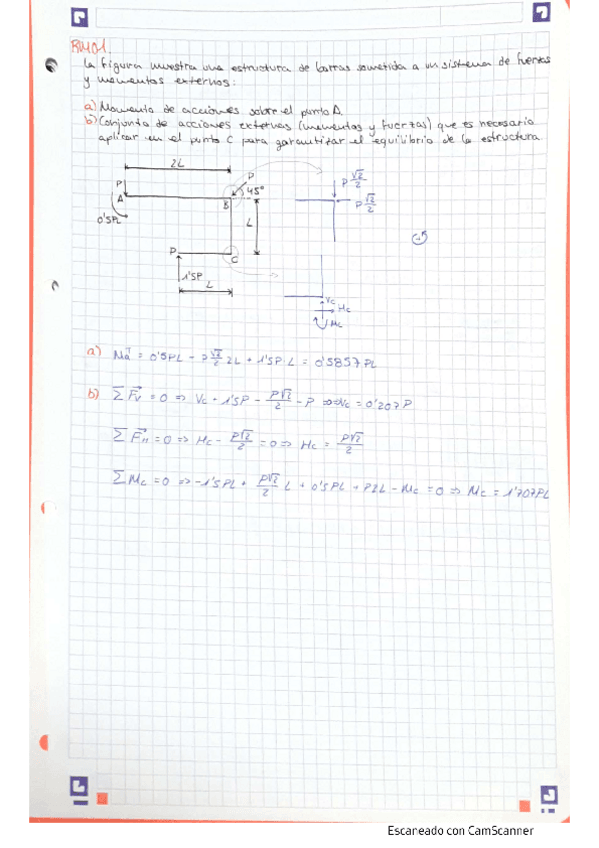 RM01.
La figura muestra una estructura de barras sometida a un sistema de fuerzas
y momentos externos:
a) Momento de acciones sobre el punto A.
b) Conjunto de acciones externas (momentos y fuerzas) que es necesario
aplicar en el punto C para garantizar el equilibrio de la estructura.
2L
P
A
0'5PL
P
45°
B
L
P
C
1'5P
L
P √2/2
P √2/2
Vc
Hc
Mc
a) Ma = 0'5PL - P √2/2 2L + 1'5P·L = 0'5857PL
b) ΣFv = 0 ⇒ Vc + 1'5P - P√2/2 - P ⇒ Vc = 0'207P
ΣFH = 0 ⇒ Hc - P√2/2 = 0 ⇒ Hc = P√2/2
ΣMc = 0 ⇒ -1'5PL + P√2/2 L + 0'5PL + P2L - Mc = 0 ⇒ Mc = 1'707PL
Escaneado con CamScanner